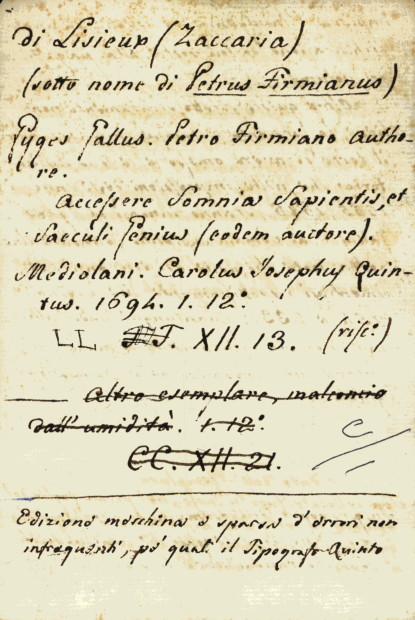 di Lisieux (Zaccaria)
(sotto nome di Petrus Firmianus)
Gyges Gallus. Petro Firmiano autho-
re.
Accessere Somnia Sapientis, et
Saeculi Genius (eodem auctore).
Mediolani. Carolus Josephus Quin-
tus. 1694. 1. 12.°
LL T. XII. 13. (risc.°)
Altro esemplare, malconcio
dall'umidità. 1. 12.°
CC. XII. 21.
Edizione meschina e sparsa d'errori non
infrequenti, pe' quali il Tipografo Quinto